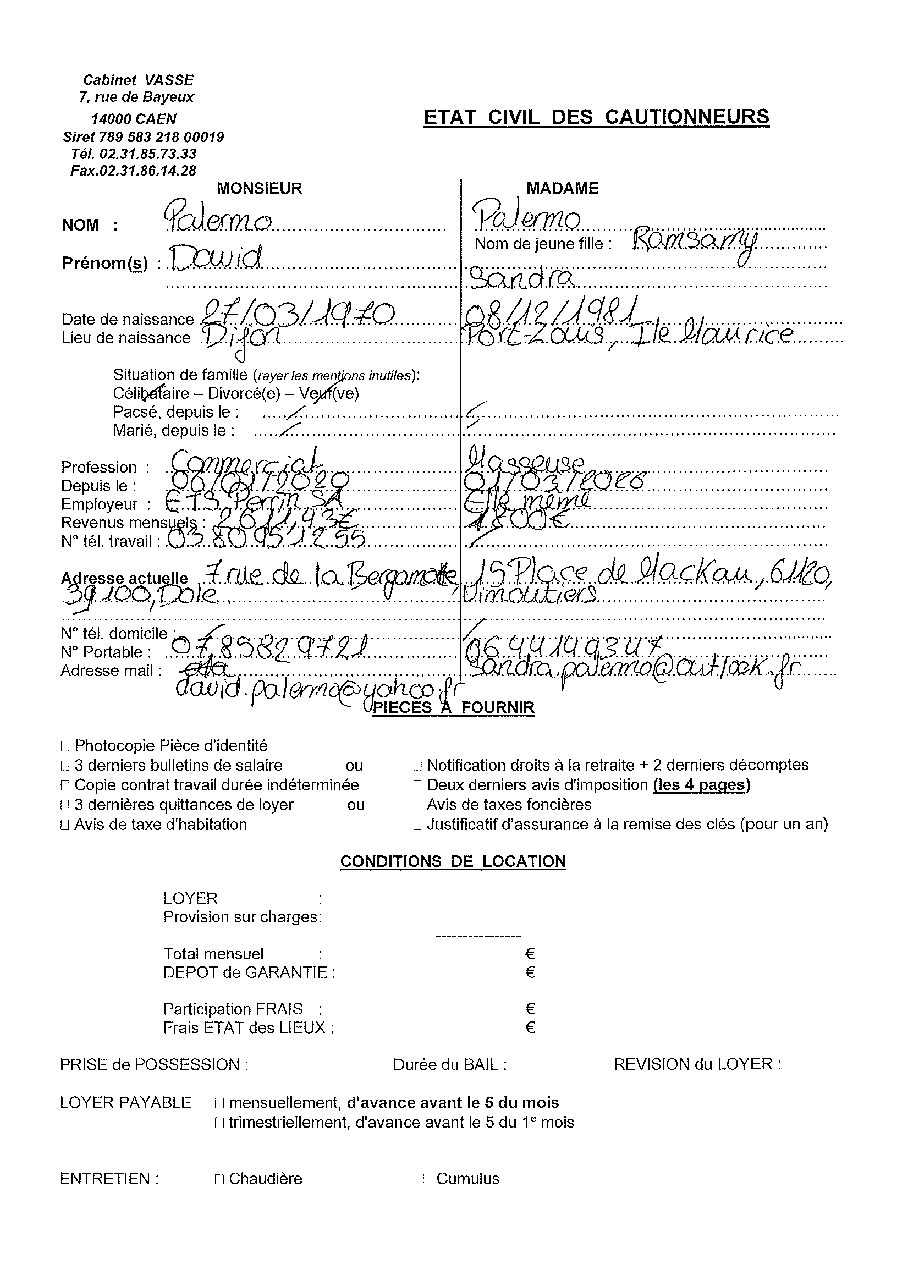 Cabinet VASSE
7, rue de Bayeux
14000 CAEN
Siret 789 583 218 00019
Tél. 02.31.85.73.33
Fax.02.31.86.14.28
ETAT CIVIL DES CAUTIONNEURS
MONSIEUR MADAME
NOM : Palermo Palermo
Nom de jeune fille : Ramsamy
Prénom(s) : David
Sandra
Date de naissance 27/03/1970 08/12/1981
Lieu de naissance Dijon Port-Louis, Ile Maurice
Situation de famille (rayer les mentions inutiles):
Célibataire – Divorcé(e) – Veuf(ve)
Pacsé, depuis le :
Marié, depuis le :
Profession : Commercial Masseuse
Depuis le : 06/01/2020 01/03/2020
Employeur : ETS Perrin SA Elle même
Revenus mensuels : 2611,93€ 1800€
N° tél. travail : 03 80 95 12 55
Adresse actuelle 7 rue de la Bergamote, 15 Place de Mackau, 6120,
39100, Dole Vimoutiers
N° tél. domicile :
N° Portable : 07 85 82 97 21 06 44 14 93 47
Adresse mail : sandra.palermo@outlook.fr
david.palermo@yahoo.fr
PIECES A FOURNIR
Photocopie Pièce d'identité
3 derniers bulletins de salaire ou Notification droits à la retraite + 2 derniers décomptes
Copie contrat travail durée indéterminée Deux derniers avis d'imposition (les 4 pages)
3 dernières quittances de loyer ou Avis de taxes foncières
Avis de taxe d'habitation Justificatif d'assurance à la remise des clés (pour un an)
CONDITIONS DE LOCATION
LOYER :
Provision sur charges:
----------------
Total mensuel : €
DEPOT de GARANTIE : €
Participation FRAIS : €
Frais ETAT des LIEUX : €
PRISE de POSSESSION : Durée du BAIL : REVISION du LOYER :
LOYER PAYABLE mensuellement, d'avance avant le 5 du mois
trimestriellement, d'avance avant le 5 du 1° mois
ENTRETIEN : Chaudière Cumulus